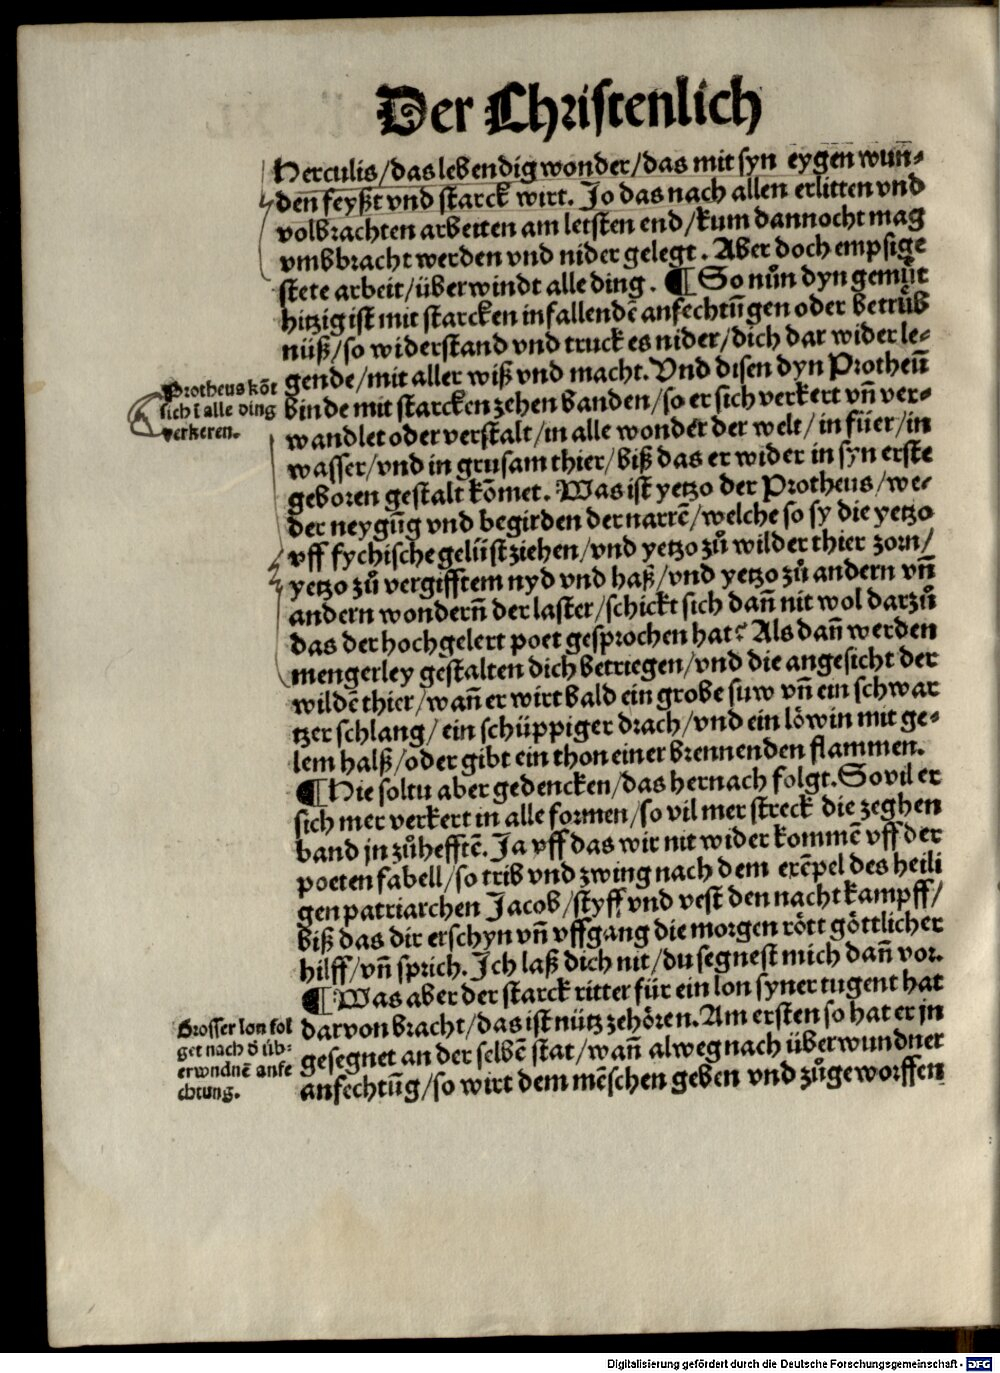 Der Christenlich
Herculis/das lebendig wonder/das mit syn eygen wun⸗
den feyßt vnd starck wirt. Jo das nach allen erlitten vnd
volbrachten arbeiten am letsten end/kum dannocht mag
vmbbracht werden vnd nider gelegt. Aber doch empsige
stete arbeit/überwindt alle ding. ¶ So nůn dyn gemůt
hitzig ist mit starcken infallendē anfechtūgen oder betrůb
nüß/so widerstand vnd truck es nider/dich dar wider le⸗
gende/mit aller wiß vnd macht. Vnd disen dyn Protheū
Protheus kōt
sich ī alle ding
verkeren.
binde mit starcken zehen banden/so er sich verkert vn̄ ver⸗
wandlet oder verstalt/in alle wonder der welt/in füer/in
wasser/vnd in grusam thier/biß das er wider in syn erste
geboren gestalt kōmet. Was ist yetzo der Protheus/we⸗
der neygūg vnd begirden der narrē/welche so sy die yetzo
vff fychische gelüst ziehen/vnd yetzo zů wilder thier zorn/
yetzo zů vergifftem nyd vnd haß/vnd yetzo zů andern vn̄
andern wondern̄ der laster/schickt sich dan̄ nit wol darzů
das der hochgelert poet gesprochen hat? Als dan̄ werden
mengerley gestalten dich betriegen/vnd die angesicht der
wildē thier/wan̄ er wirt bald ein grobe suw vn̄ ein schwar
tzer schlang/ein schüppiger drach/vnd ein löwin mit ge⸗
lem halß/oder gibt ein thon einer brennenden flammen.
¶ Hie soltu aber gedencken/das hernach folgt. So vil er
sich mer verkert in alle formen/so vil mer streck die zeghen
band jn zůhefftē. Ja vff das wir nit wider kommē vff der
poeten fabell/so trib vnd zwing nach dem exēpel des heili
gen patriarchen Jacob/styff vnd vest den nacht kampff/
biß das dir erschyn vn̄ vffgang die morgen rött göttlicher
hilff/vn̄ sprich. Ich laß dich nit/du segnest mich dan̄ vor.
¶ Was aber der starck ritter für ein lon syner tugent hat
darvon bracht/das ist nütz zehören. Am ersten so hat er jn
Grosser lon fol
get nach d̄ üb⸗
erwndnē anfe
chtung.
gesegnet an der selbē stat/wan̄ alweg nach überwundner
anfechtūg/so wirt dem mēschen geben vnd zůgeworffen
Digitalisierung gefördert durch die Deutsche Forschungsgemeinschaft - DFG